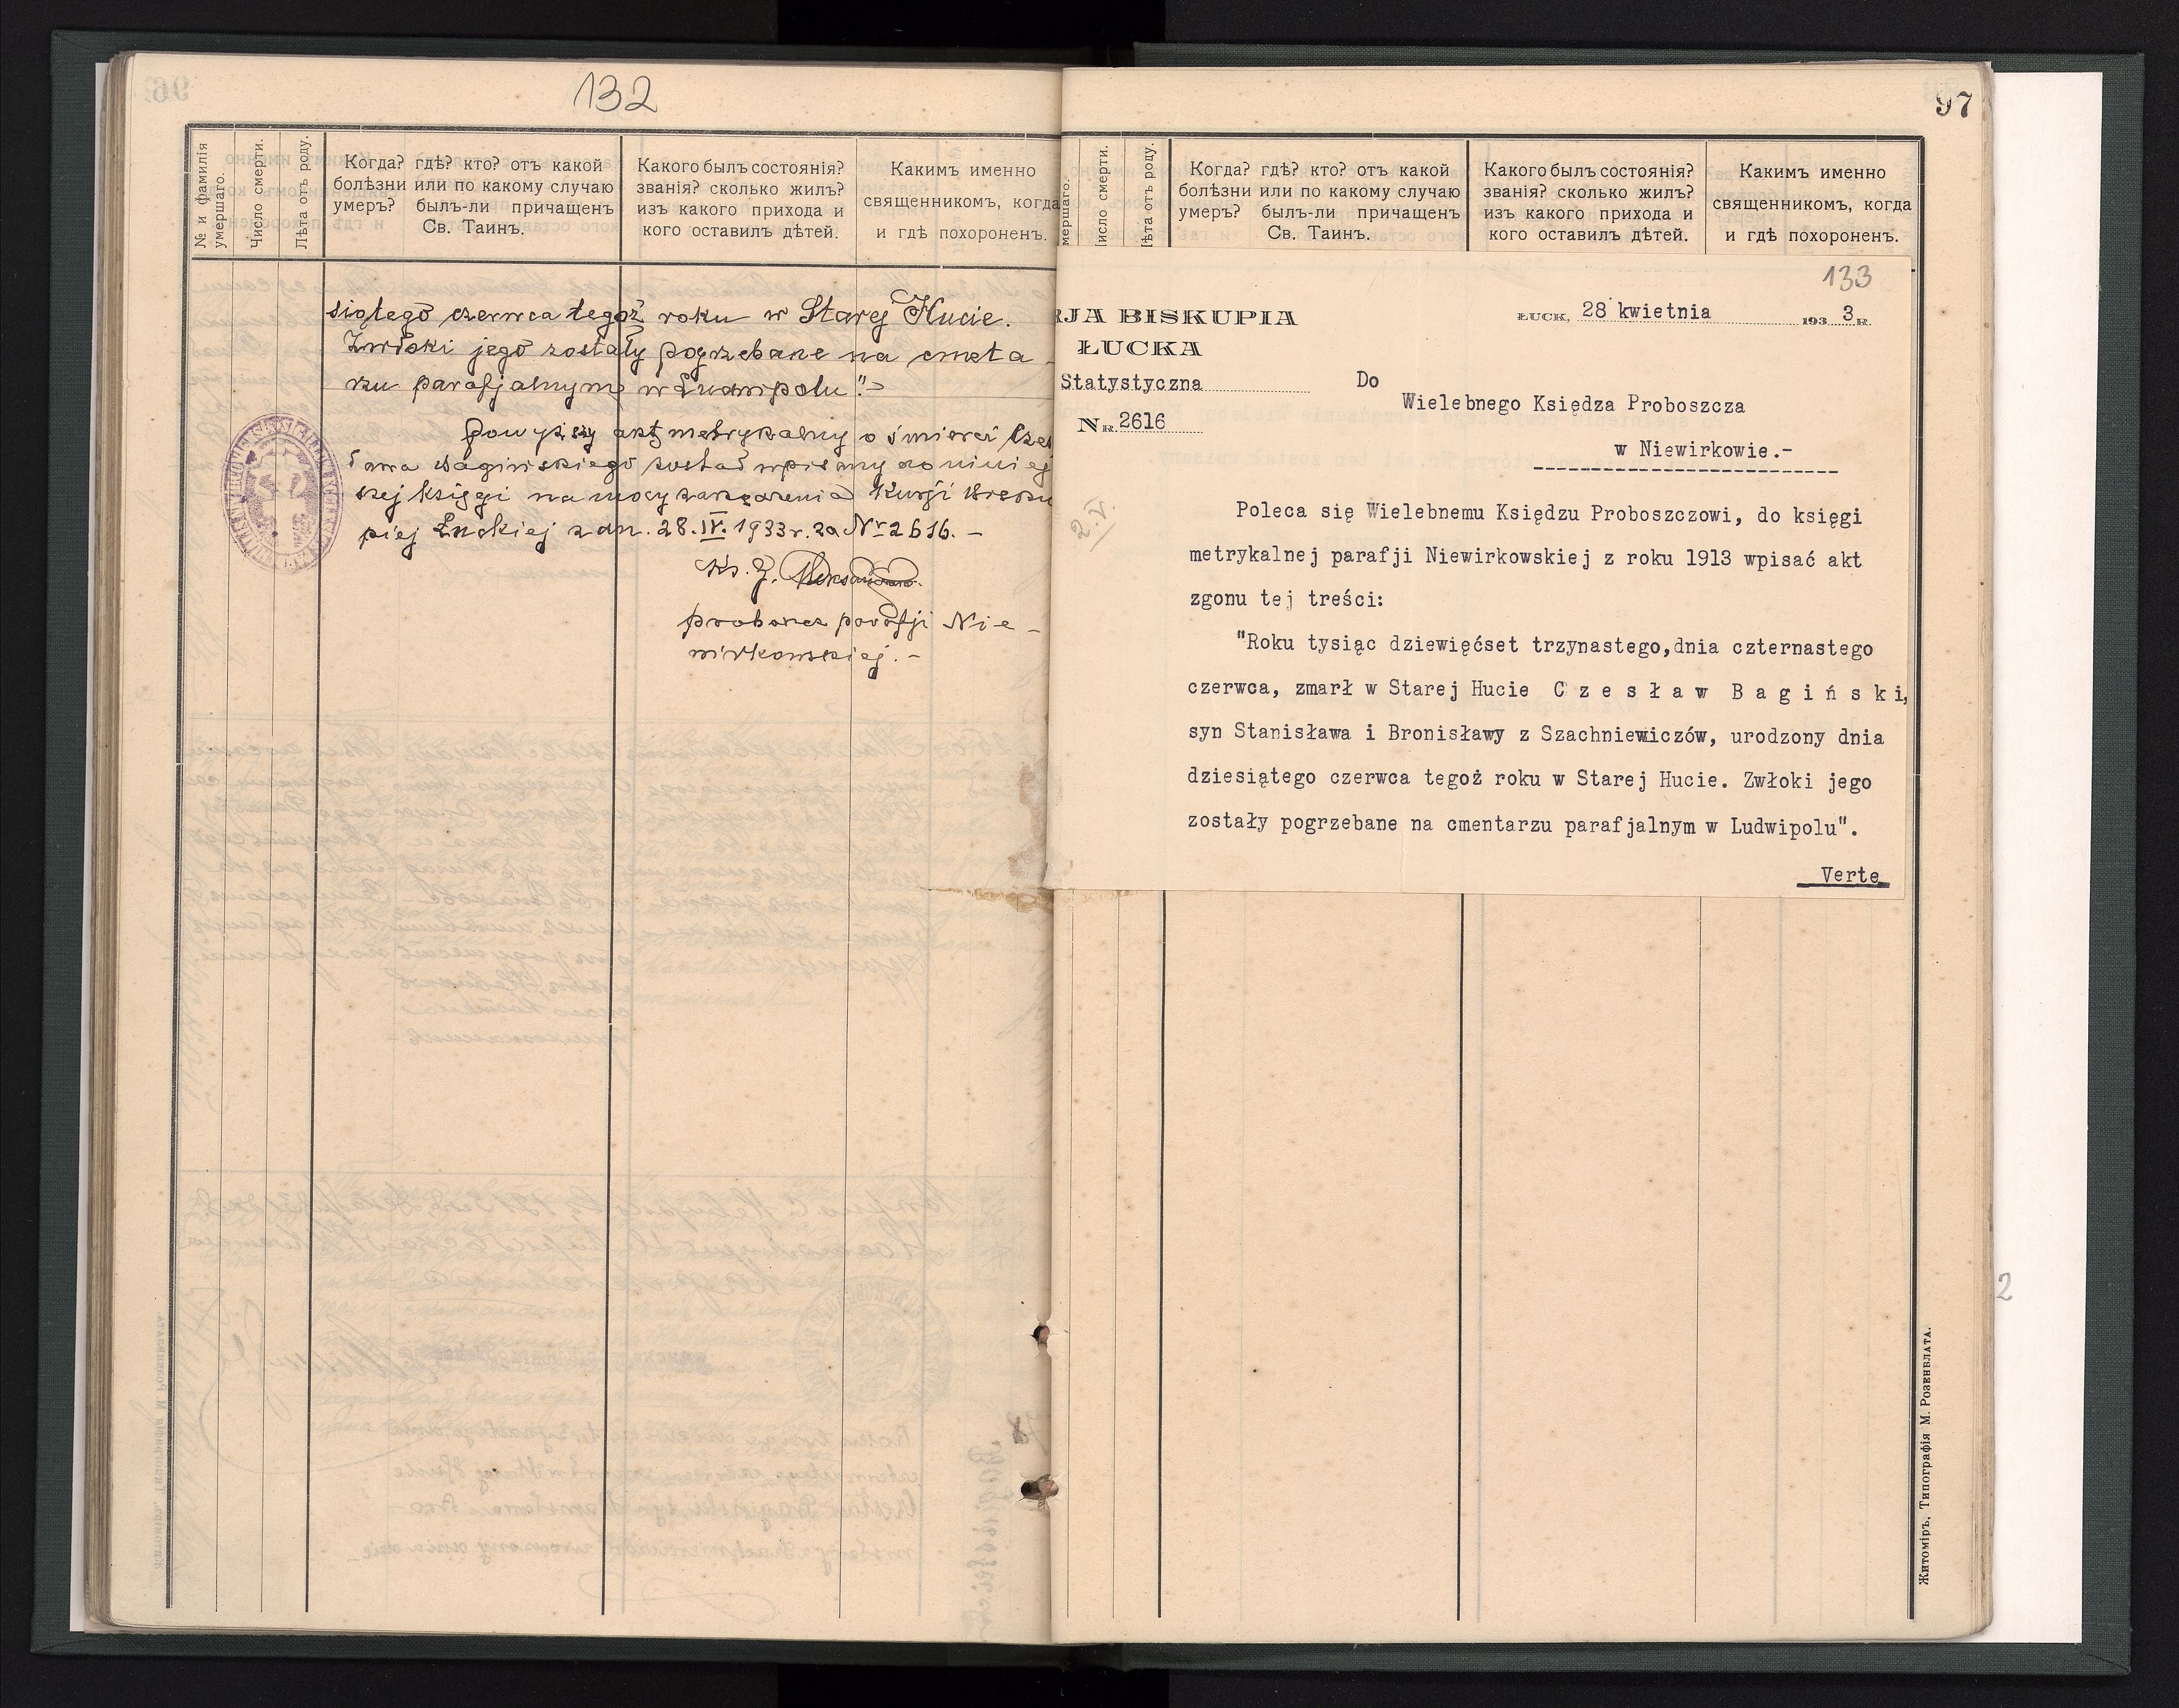 132
№ и фамилія умершаго.
Число смерти.
Лѣта отъ роду.
Когда? гдѣ? кто? отъ какой
болѣзни или по какому случаю
умеръ? былъ-ли причащенъ
Св. Таинъ.
Какого былъ состоянія?
званія? сколько жилъ?
изъ какого прихода и
кого оставилъ дѣтей.
Какимъ именно
священникомъ, когда
и гдѣ похороненъ.
siątego czerwca tegoż roku w Starej Hucie.
Zwłoki jego zostały pogrzebane na cmeta-
rzu parafjalnym w Ludwipolu".-
Powyższy akt metrykalny o śmierci Cze
sława Bagińskiego został wpisany do niniej
szej księgi na mocy zarządzenia Kurji Bisku
piej Łuckiej z dn. 28.IV.1933 r. za Nr 2616.-
Ks. J.
proboszcz parafji Nie-
wirkowskiej.-
97
мершаго.
исло смерти.
ѣта отъ роду.
Когда? гдѣ? кто? отъ какой
болѣзни или по какому случаю
умеръ? былъ-ли причащенъ
Св. Таинъ.
Какого былъ состоянія?
званія? сколько жилъ?
изъ какого прихода и
кого оставилъ дѣтей.
Какимъ именно
священникомъ, когда
и гдѣ похороненъ.
133
RJA BISKUPIA
ŁUCKA
Statystyczna
Nr. 2616
ŁUCK, 28 kwietnia 193 3 R.
Do
Wielebnego Księdza Proboszcza
w Niewirkowie.-
2.V.
Poleca się Wielebnemu Księdzu Proboszczowi, do księgi
metrykalnej parafji Niewirkowskiej z roku 1913 wpisać akt
zgonu tej treści:
"Roku tysiąc dziewięćset trzynastego,dnia czternastego
czerwca, zmarł w Starej Hucie C z e s ł a w B a g i ń s k i,
syn Stanisława i Bronisławy z Szachniewiczów, urodzony dnia
dziesiątego czerwca tegoż roku w Starej Hucie. Zwłoki jego
zostały pogrzebane na cmentarzu parafjalnym w Ludwipolu".
Verte
2
Житоміръ, Типографія М. Розенблата.